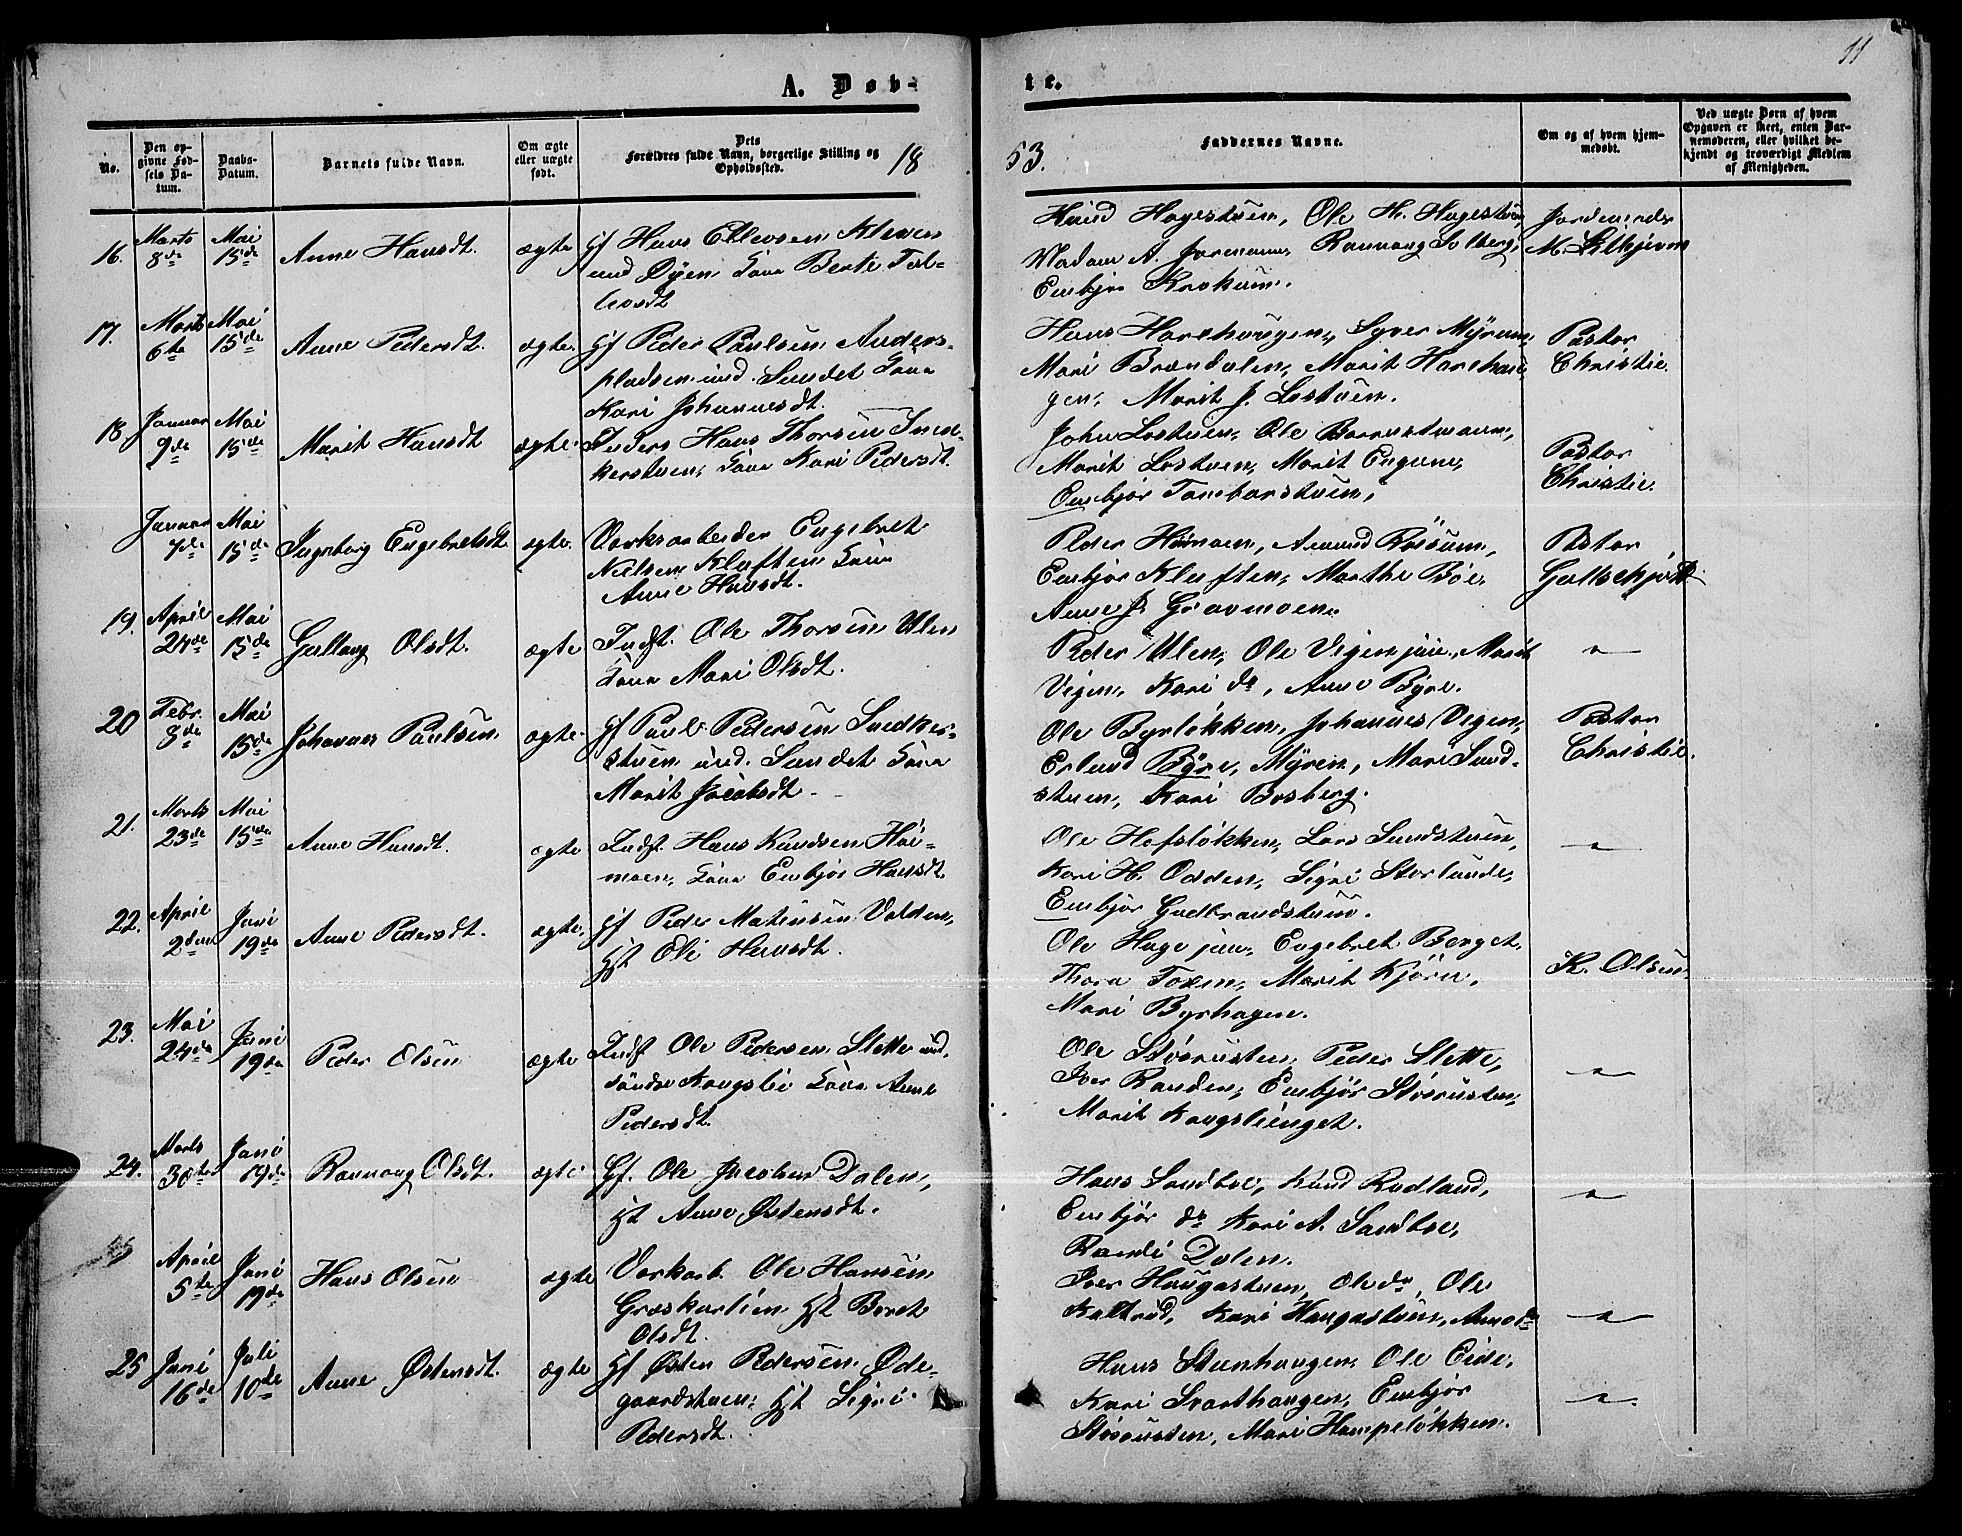 11
A. Døb-
te.
No.
Den op-
givne Fød-
sels Da-
tum.
Daabs-
Datum.
Barnets fulde Navn.
Om ægte
eller uægte
født.
Dets
Forældres fulde Navn, borgerlige Stilling og
Opholdssted.
18
53.
Faddernes Navne.
Om og af hvem hjem-
medøbt.
Ved uægte Børn af hvem
Opgaven er skeet, enten Bar-
nemoderen, eller hvilket be-
kjendt og troværdigt Medlem
af Menigheden.
16. Marts 8de Mai 15de Anne Hansdt. ægte
Gf Hans Ellevsen Kleven
und Øyen Kone Berte Tol-
levsdt
Ole H. Hagestuen,
Madam A. Rannoug Solberg,
Embjør Krokum.
Jordemoder
17. Marts 6te Mai 15de Anne Pedersdt. ægte.
Hf Peder Paulsen Anders-
pladsen und. Sundet Kone
Kari Johannesdt.
Hans Harehougen, Syver Myrum,
Mari Brændalen, Marit Harehou-
gen, Marit J. Lostuen.
Pastor
Christie
18. Januar 9de Mai 15de Marit Hansdt ægte.
Inders Hans Thorsen Sned-
kerstuen, Kone Kari Pedersdt.
John Lostuen, Ole
Marit Lostuen, Marit Engene,
Embjør
Pastor
Christie.
Januar 7de Mai 15de Ingeborg Engebretsdt ægte.
Værksarbeider Engebret
Nielsen Kluften Kone
Anne Hansdt.
Peder Hømoen, Amund Røssum,
Embjør Kluften, Marthe Böe,
Anne J. Gravmoen.
Pastor
19. April 24de Mai 15de Gullaug Olsdt. ægte
Indst. Ole Thorsen Ulen
Kone Mari Olsdt.
Peder Ulen, Ole Vigenjeie, Marit
Vigen, Kari do, Anne Byre.
—"—
20 Febr. 8de Mai 15de Johannes Paulsen ægte.
Gf Paul Pedersen Snedker-
stuen und. Sundet Kone
Marit Jacobsdt.
Ole Byrløkken, Johannes Vigen,
Erland Byre, Myren, Mari Sund-
stuen, Kari Bosberg.
Pastor
Christie.
21. Marts 23de Mai 15de Anne Hansdt. ægte
Indst. Hans Knudsen Höi-
moen, Kone Embjør Hansdt.
Ole Hofsløkken, Lars Sundstuen,
Kari H. Odden, Sigri Storlunde,
Embjør Gudbrandstuen.
—"—
22. April 2den Juni 19de Anne Pedersdt. ægte.
Gf Peder Matiasen Volden,
Hst Eli Hansdt.
Ole Hagejeun, Engebret Berget,
Thora Toxen, Marit Kjörn,
Mari Byrhagen.
K. Olsen
23. Mai 24de Juni 19de Peder Olsen ægte
Indst Ole Pedersen Slette und.
søndre Kongsli Kone Anne
Pedersdt.
Ole Stórusten, Peder Slette,
Iver Randen, Embjør Stórusten,
Marit Kongslienget.
—"—
24. Marts 30te Juni 19de Rannoug Olsdt. ægte
Gf. Ole Jacobsen Dalen,
Hst Anne Østensdt.
Hans Sandboe, Knud Rudland,
Embjør do Kari A. Sandboe,
Randi Dalen.
—"—
April 5te Juni 19de Hans Olsen ægte
Værkarb. Ole Hansen
Græskarlien Hst Beret
Olsdt.
Iver Haugastuen, Ole do, Ole
Kaltrud, Kari Haugastuen, Anne do
—"—
25 Juni 16de Juli 10de Anne Østensdt. ægte
Gf Østen Pedersen Øde-
gaardstuen, Hst Sigri
Pedersdt.
Hans Steenhaugen, Ole Eide,
Kari Svarthaugen, Embjør
Stórusten, Mari Hampeløkken.
—"—